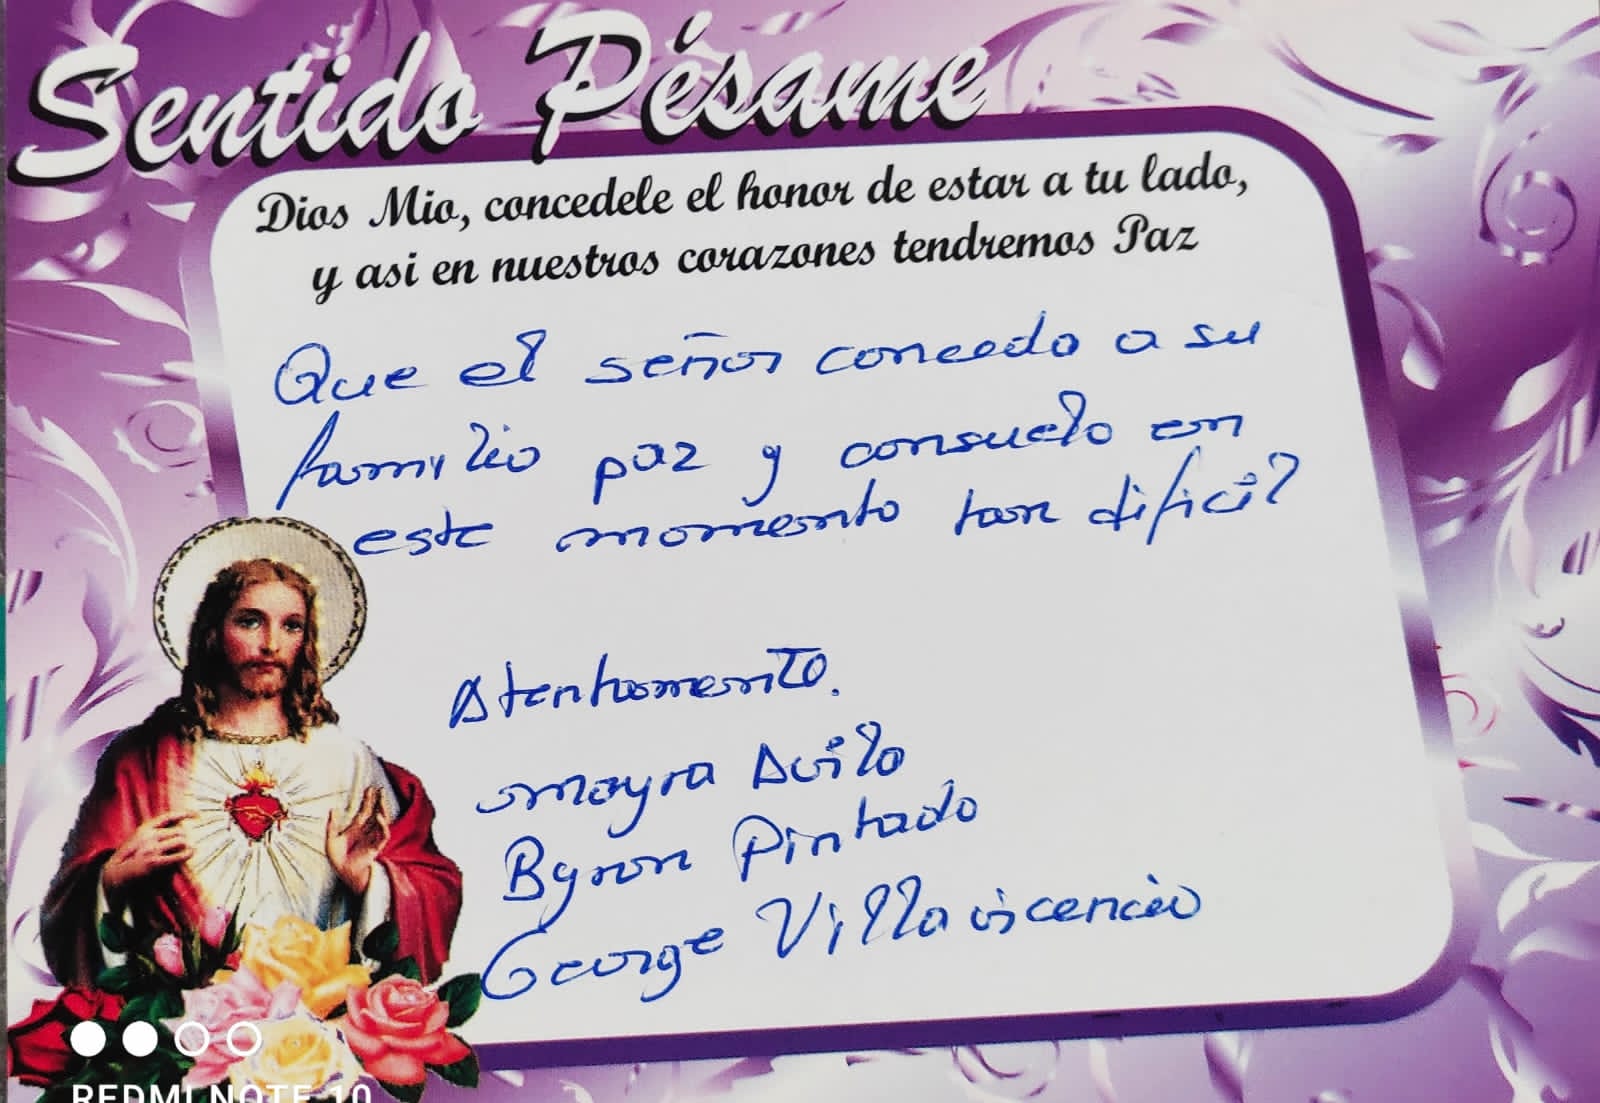 Sentido Pésame
Dios Mio, concedele el honor de estar a tu lado,
y asi en nuestros corazones tendremos Paz
Que el señor conceda a su
familia paz y consuelo en
este momento tan dificil
Atentamente.
Mayra Avila
Byron Pintado
George Villavicencio
REDMI NOTE 10